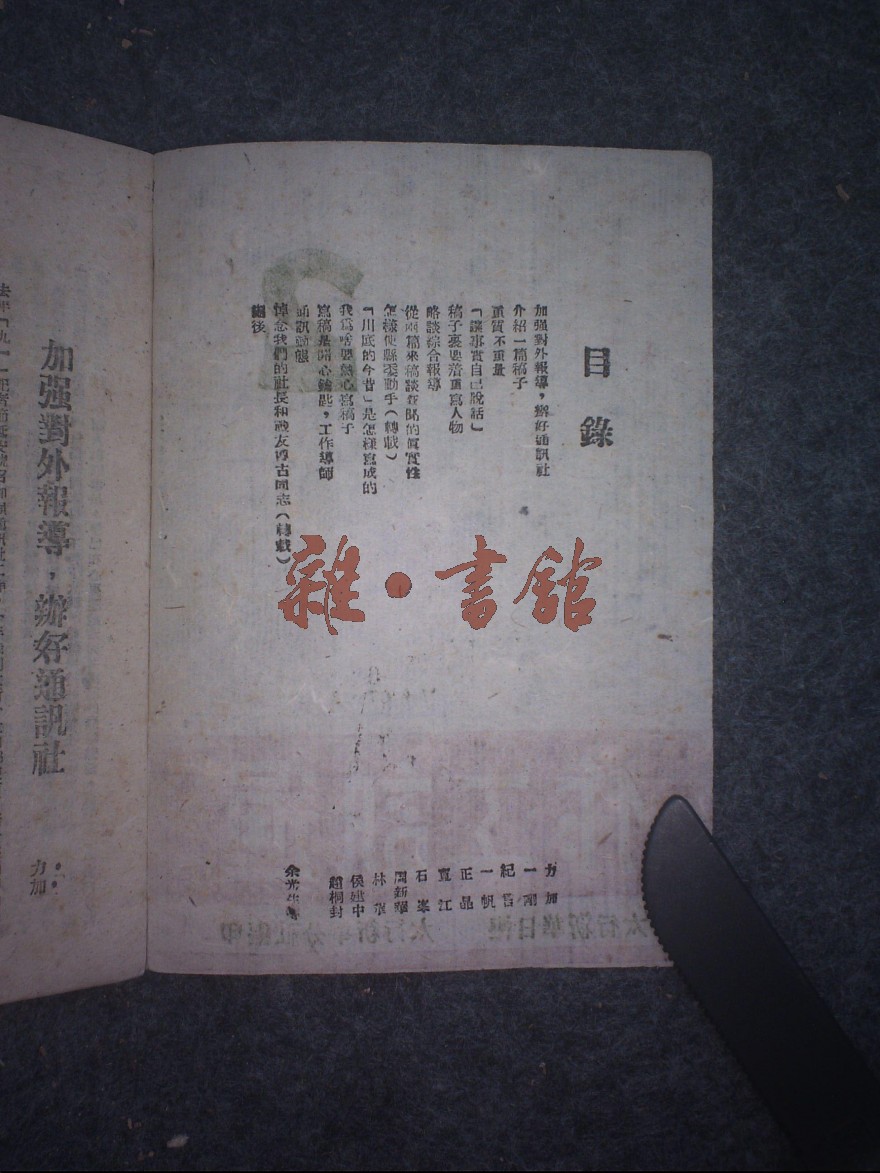 目錄
加强對外報導,辦好通訊社
介紹一篇稿子
重質不重量
「讓事實自己說話」
稿子裏要着重寫人物
略談綜合報導
從兩篇來稿談新聞的眞實性
怎樣使縣委動手(轉載)
「川底的今昔」是怎樣寫成的
我爲啥要熱心寫稿子
寫稿是開心鑰匙,工作導師
通訊動態
悼念我們的社長和戰友博古同志(轉載)
編後
力加
一剛
紀昔
一帆
正品
寬江
石峯
周新華
林
侯述中
趙桐封
余光生
雜·書館
加强對外報導,辦好通訊社
力加
太行新華日報
太行新華分社編印